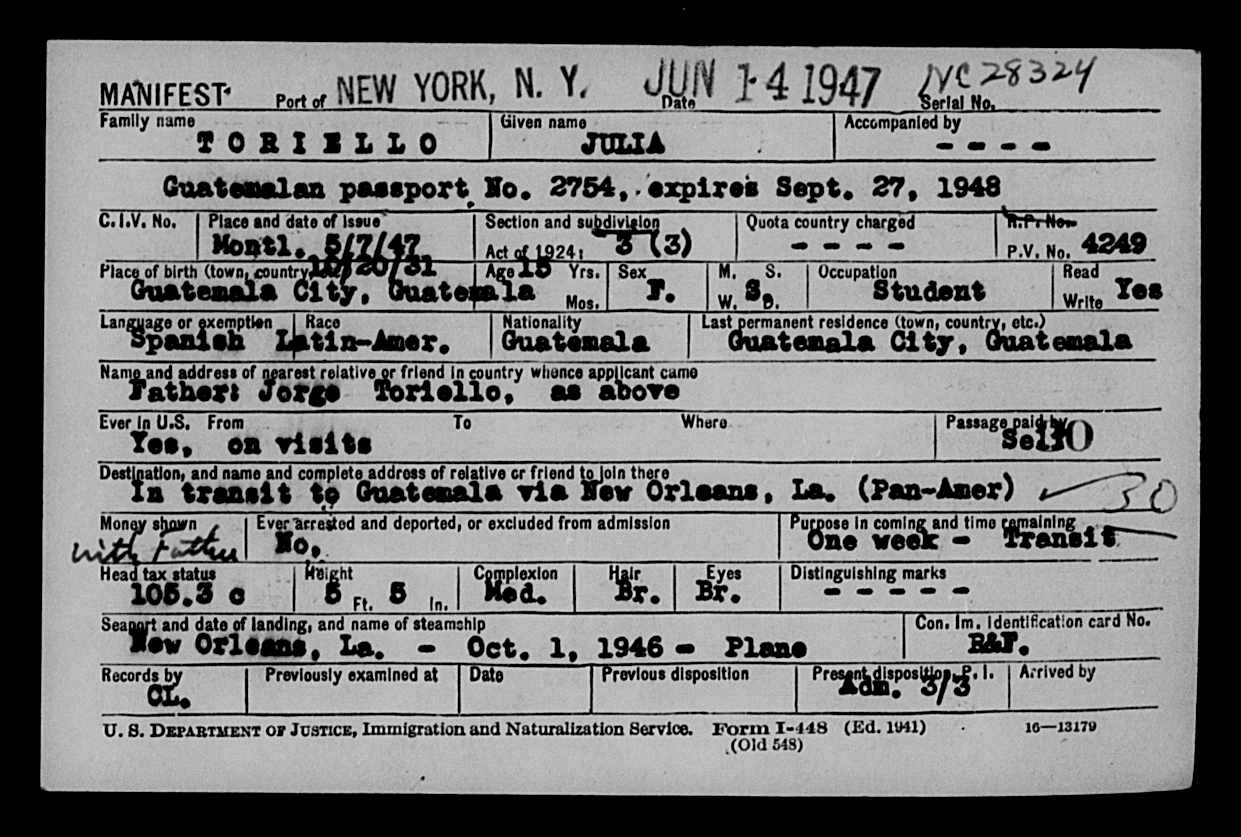 MANIFEST Port of NEW YORK, N. Y. JUN 14 1947 NC 28324
Date Serial No.
Family name Given name Accompanied by
TORIELLO JULIA - - - -
Guatemalan passport No. 2754, expires Sept. 27, 1948
C.I.V. No. Place and date of issue Section and subdivision Quota country charged R.P. No.
Montl. 5/7/47 Act of 1924: 3 (3) - - - - P.V. No. 4249
Place of birth (town, country, 10/20/31 Age 15 Yrs. Sex M. S. Occupation Read
Guatemala City, Guatemala Mos. F. W. S. D. Student Write Yes
Language or exemption Race Nationality Last permanent residence (town, country, etc.)
Spanish Latin-Amer. Guatemala Guatemala City, Guatemala
Name and address of nearest relative or friend in country whence applicant came
Father: Jorge Toriello, as above
Ever in U.S. From To Where Passage paid by
Yes, on visits Self
Destination, and name and complete address of relative or friend to join there
In transit to Guatemala via New Orleans, La. (Pan-Amer) 30
Money shown Ever arrested and deported, or excluded from admission Purpose in coming and time remaining
with Father No. One week - Transit
Head tax status Height Complexion Hair Eyes Distinguishing marks
105.3 c 5 Ft. 5 In. Med. Br. Br. - - - - -
Seaport and date of landing, and name of steamship Con. Im. Identification card No.
New Orleans, La. - Oct. 1, 1946 - Plane R&F.
Records by Previously examined at Date Previous disposition Present disposition, P. I. Arrived by
CL. Adm. 3/3
U. S. DEPARTMENT OF JUSTICE, Immigration and Naturalization Service. Form I-448 (Ed. 1941) 16—13179
(Old 548)